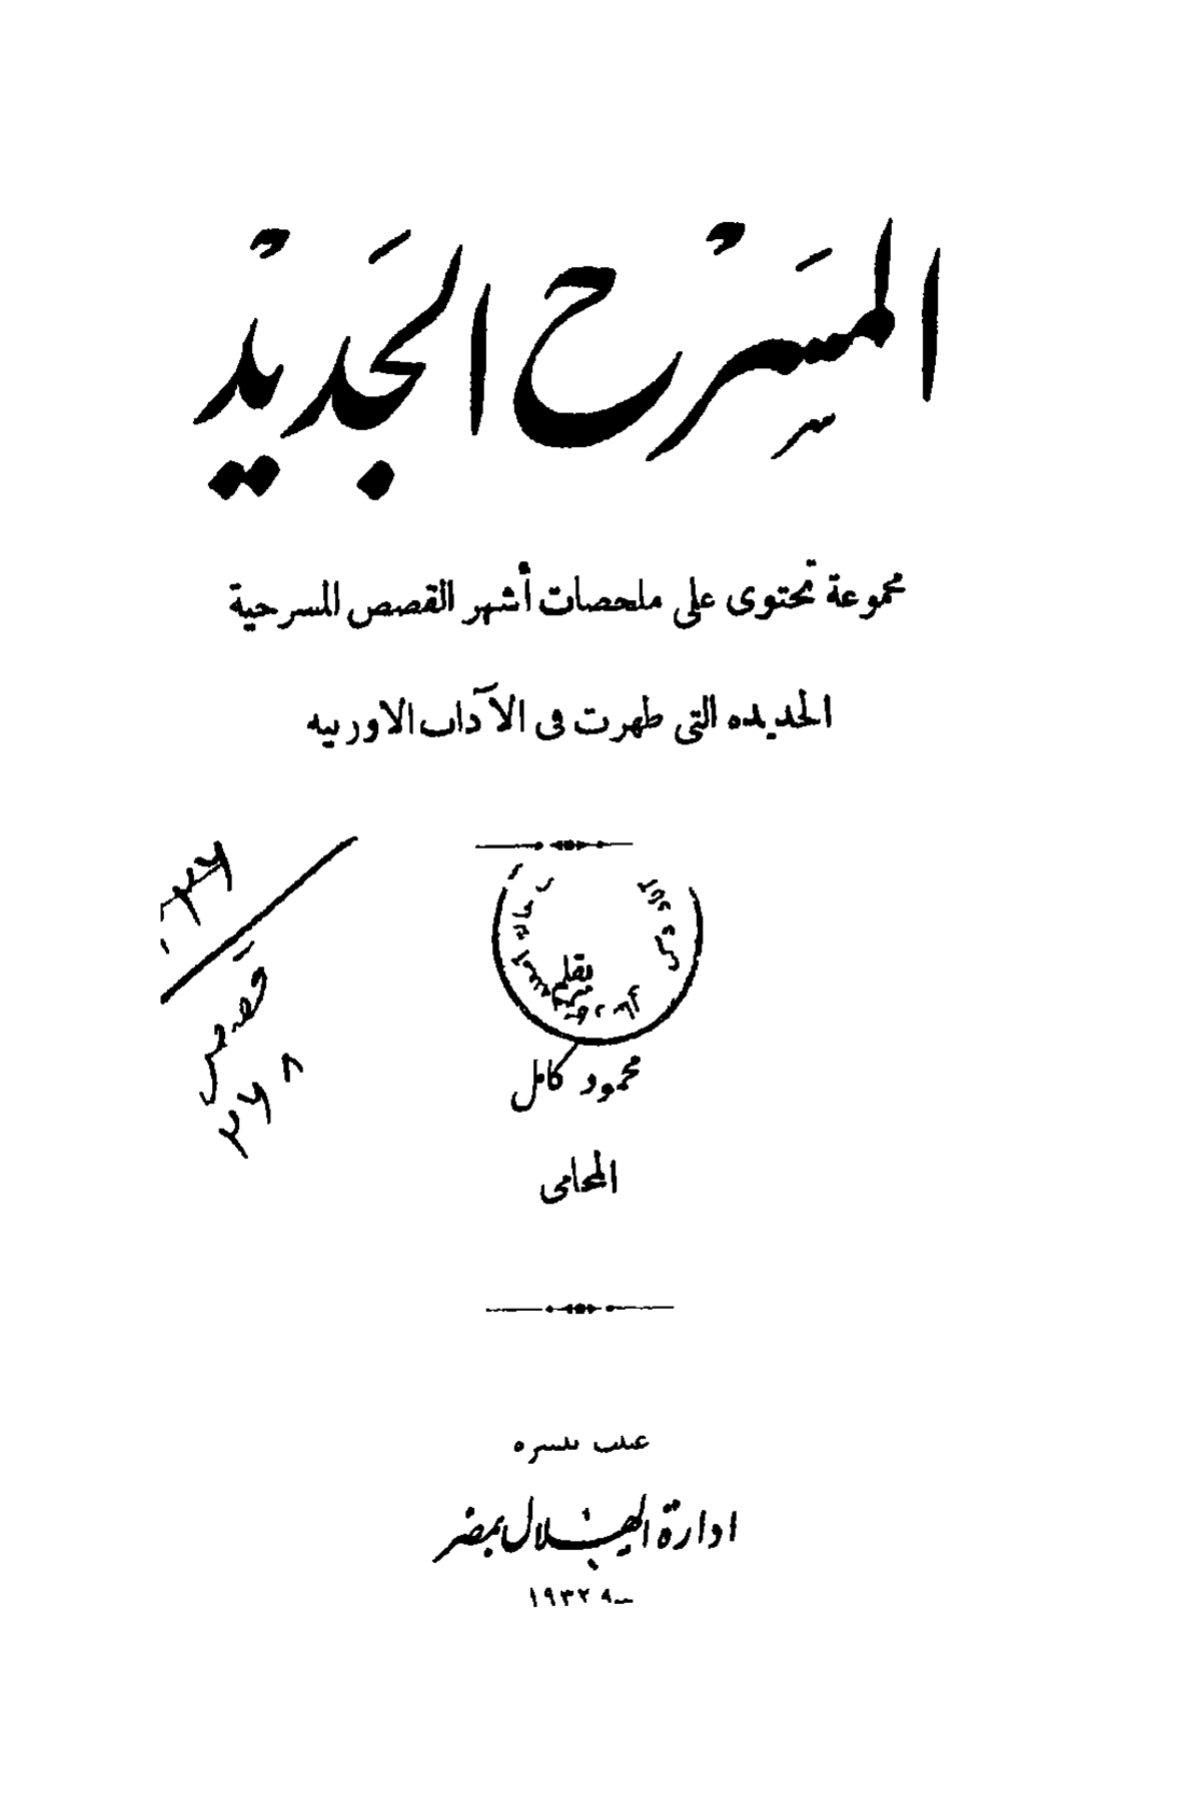 المَسْرَح الجَديْد
مجموعة تحتوى على ملخصات أشهر القصص المسرحية
الجديده التى ظهرت فى الآداب الاوربيه
بقلم
محمود كامل
المحامى
قصص
٢٤٨
عنيت بنشره
ادارة الهلال بمصر
سنة ١٩٣٢